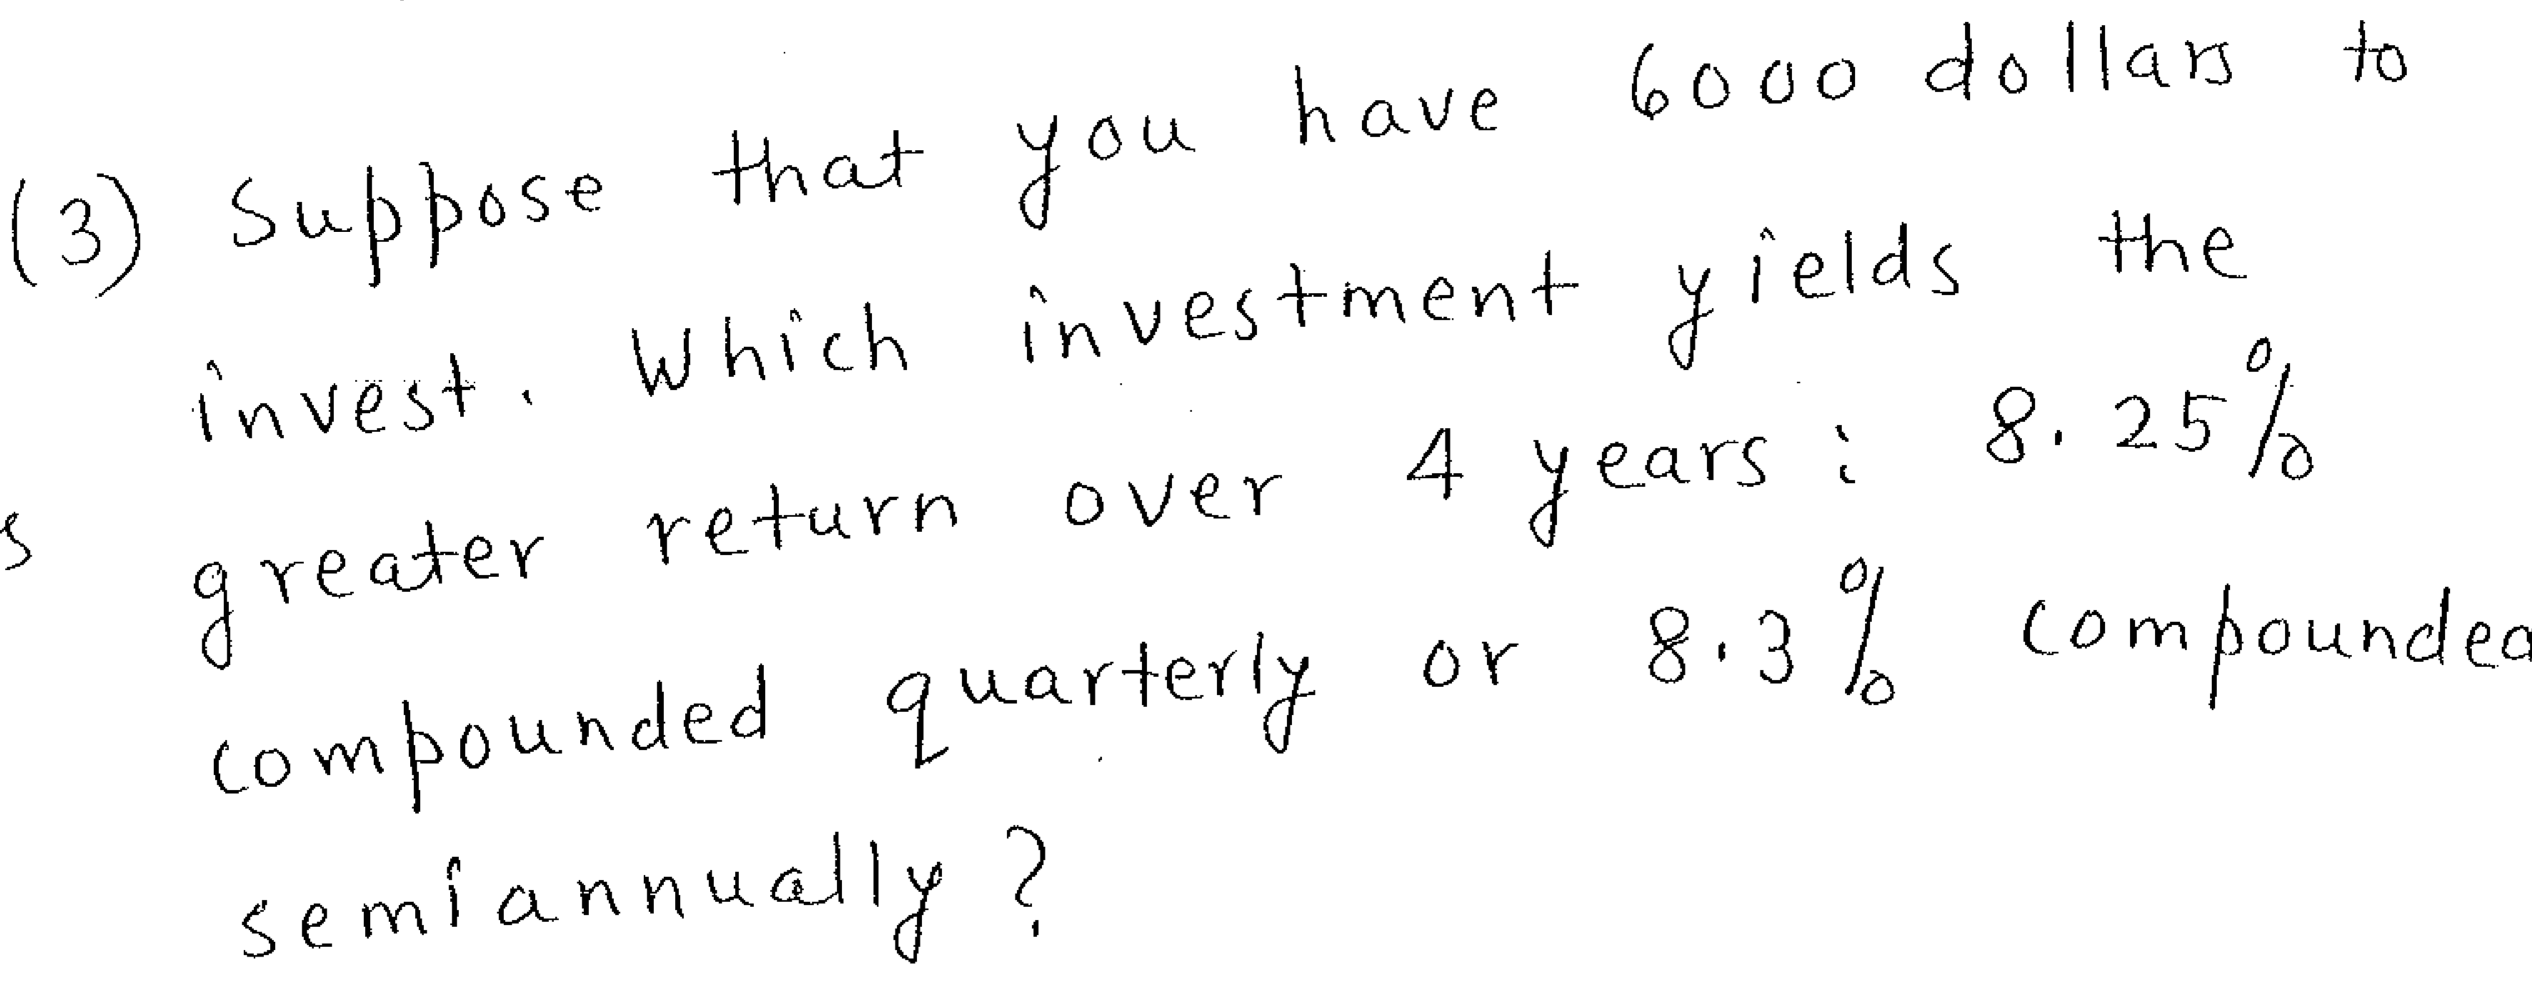 (3) Suppose that you have 6000 dollars to
invest. Which investment yields the
greater return over 4 years: 8.25%
s
compounded quarterly or 8.3% compounded
semiannually?